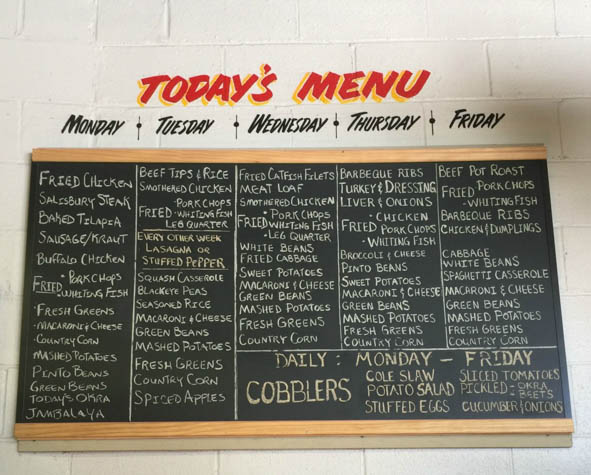 TODAY'S MENU
MONDAY
FRIED CHICKEN
SALISBURY STEAK
BAKED TILAPIA
SAUSAGE/KRAUT
BUFFALO CHICKEN
FRIED • PORK CHOPS
• WHITING FISH
FRESH GREENS
MACARONI & CHEESE
COUNTRY CORN
MASHED POTATOES
PINTO BEANS
GREEN BEANS
TODAY'S OKRA
JAMBALAYA
TUESDAY
BEEF TIPS & RICE
SMOTHERED CHICKEN
FRIED • PORK CHOPS
• WHITING FISH
LEG QUARTER
EVERY OTHER WEEK
LASAGNA OR
STUFFED PEPPER
SQUASH CASSEROLE
BLACKEYE PEAS
SEASONED RICE
MACARONI & CHEESE
GREEN BEANS
MASHED POTATOES
FRESH GREENS
COUNTRY CORN
SPICED APPLES
WEDNESDAY
FRIED CATFISH FILETS
MEAT LOAF
SMOTHERED CHICKEN
FRIED • PORK CHOPS
WHITING FISH
• LEG QUARTER
WHITE BEANS
FRIED CABBAGE
SWEET POTATOES
MACARONI & CHEESE
GREEN BEANS
MASHED POTATOES
FRESH GREENS
COUNTRY CORN
THURSDAY
BARBEQUE RIBS
TURKEY & DRESSING
LIVER & ONIONS
• CHICKEN
FRIED PORK CHOPS
• WHITING FISH
BROCCOLI & CHEESE
PINTO BEANS
SWEET POTATOES
MACARONI & CHEESE
GREEN BEANS
MASHED POTATOES
FRESH GREENS
COUNTRY CORN
FRIDAY
BEEF POT ROAST
FRIED PORK CHOPS
• WHITING FISH
BARBEQUE RIBS
CHICKEN & DUMPLINGS
CABBAGE
WHITE BEANS
SPAGHETTI CASSEROLE
MACARONI & CHEESE
GREEN BEANS
MASHED POTATOES
FRESH GREENS
COUNTRY CORN
DAILY: MONDAY - FRIDAY
COBBLERS
COLE SLAW
POTATO SALAD
STUFFED EGGS
SLICED TOMATOES
PICKLED: • OKRA
• BEETS
CUCUMBER & ONIONS